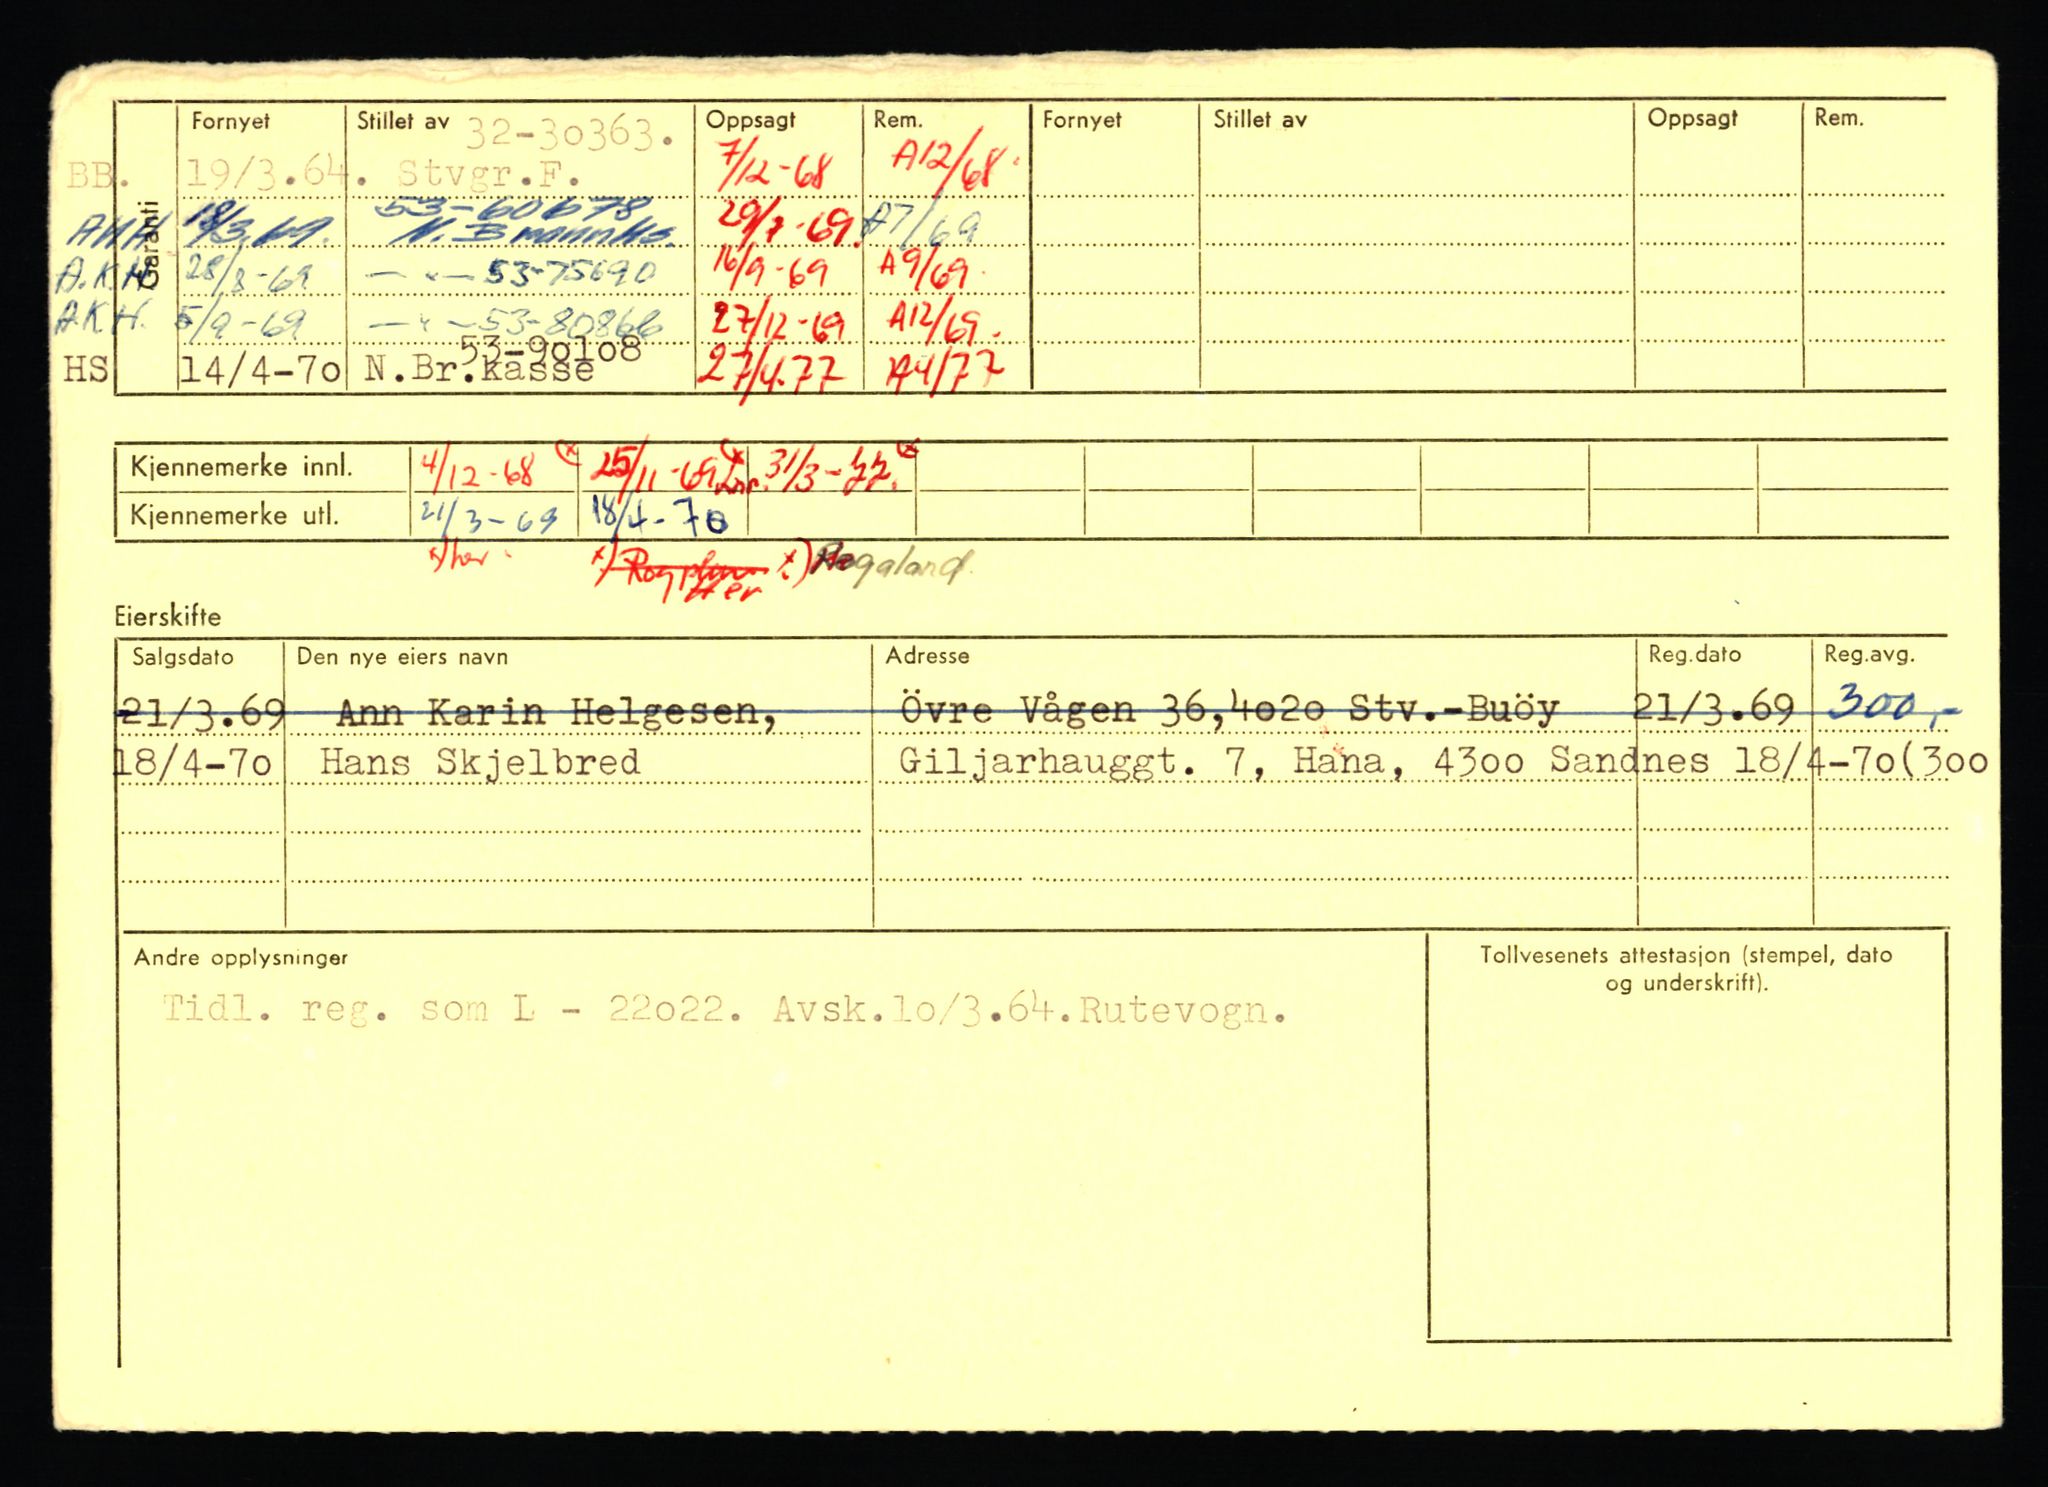 Fornyet Stillet av Oppsagt Rem. Fornyet Stillet av Oppsagt Rem.
Garanti
32-30363.
BB. 19/3.64. Stvgr.F. 7/12-68 A12/68.
53-60678
18/3.69. 29/7-69. A7/69
A.K.H. 28/8-69 — " — 53-75690 16/9-69 A9/69.
A.K.H. 5/9-69 — " — 53-80866 27/12-69 A12/69.
53-90108
HS 14/4-70 N.Br.kasse 27/4.77 A4/77
Kjennemerke innl. 4/12-68 x) 25/11-69 x) 31/3-77. x)
Kjennemerke utl. 21/3-69 18/4-70
x) her x) her x) Rogaland.
Eierskifte
Salgsdato Den nye eiers navn Adresse Reg.dato Reg.avg.
21/3.69 Ann Karin Helgesen, Övre Vågen 36,4020 Stv.-Buöy 21/3.69 300,-
18/4-70 Hans Skjelbred Giljarhauggt. 7, Hana, 4300 Sandnes 18/4-70(300
Andre opplysninger
Tidl. reg. som L - 22022. Avsk.10/3.64.Rutevogn.
Tollvesenets attestasjon (stempel, dato
og underskrift).